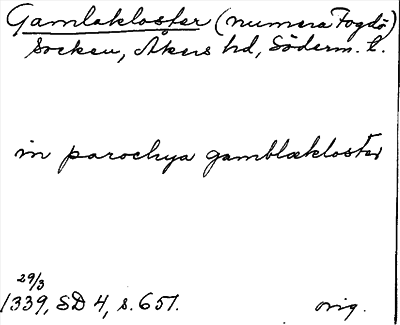 Gamlakloster (numera Fogdö)
socken, Åkers hd, Söderm. l.
in parochya gamblækloster
29/3
1339, SD 4, s. 651.
orig.